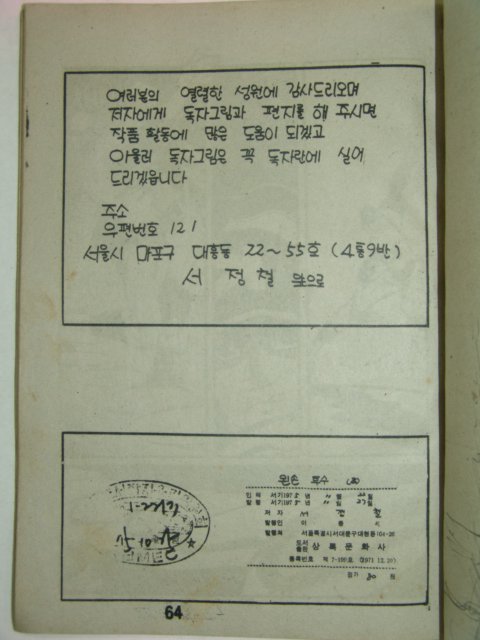 여러분의 열렬한 성원에 감사드리오며
저자에게 독자그림과 편지를 해 주시면
작품 활동에 많은 도움이 되겠고
아울러 독자그림은 꼭 독자란에 실어
드리겠읍니다
주소
우편번호 121
서울시 마포구 대흥동 22~55호 (4통9반)
서 정 철 앞으로
왼손 투수
인쇄 서기197 년 월 일
발행 서기197 년 월 27일
저자 서 정 철
발행인 이
발행처 서울특별시서대문구대현동104-26
도서출판 상록문화사
등록번호 제7-199호 (1971. 12. 20)
정가 80 원
64